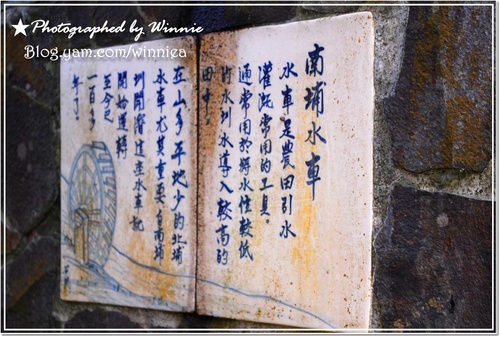 ★ Photographed by Winnie
Blog.yam.com/winniea
南埔水車
水車是農田引水
灌溉常用的工具。
通常用於將水位較低
的水圳水導入較高的
田中。
在山多平地少的北埔
水車尤其重要自南埔
圳開濬這座水車就
開始運轉
至今已
一百多
年了